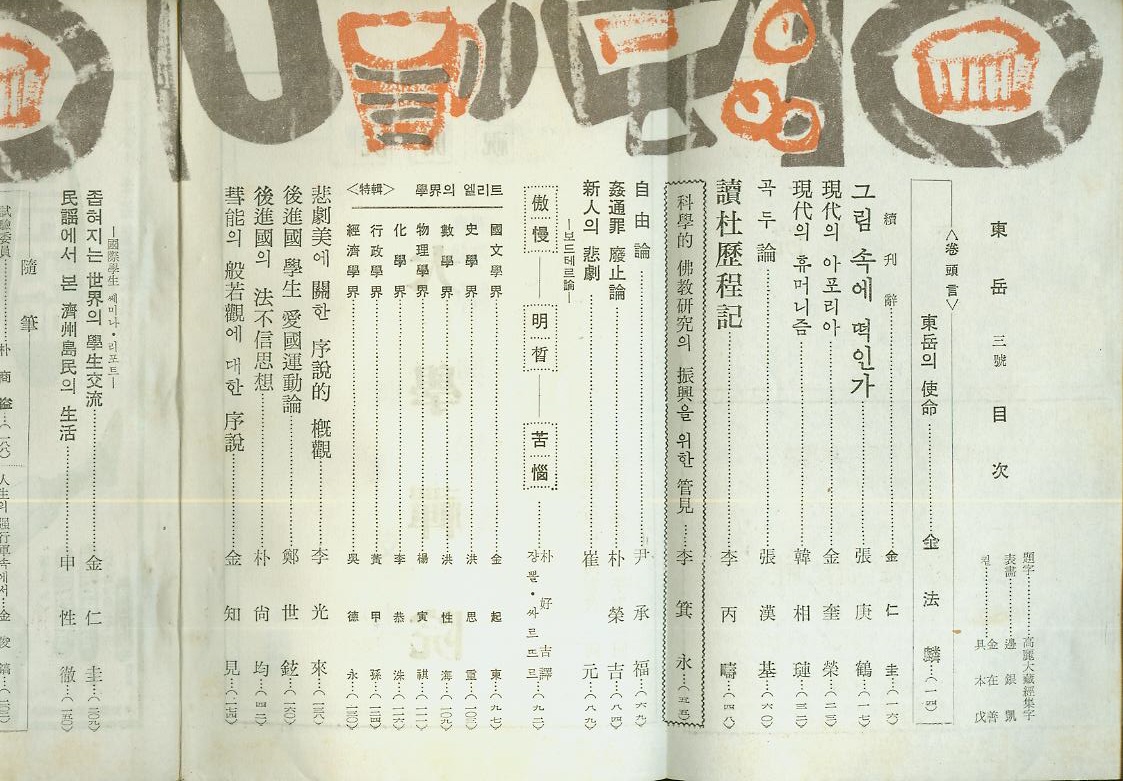 東岳 三號 目次
題字……高麗大藏經集字
表畵……邊銀凱
컽……金在善
具本戊
<卷頭言>
東岳의 使命……金法麟…(一四)
續刊辭……金仁圭…(一六)
그림 속에 떡인가……張庚鶴…(一七)
現代의 아포리아……金奎榮…(二二)
現代의 휴머니즘……韓相璉…(三二)
곡두論……張漢基…(六〇)
讀杜歷程記……李丙疇…(四八)
科學的 佛敎硏究의 振興을 위한 管見……李箕永…(五五)
自由論……尹承福…(六九)
姦通罪 廢止論……朴榮吉…(八四)
新人의 悲劇……崔元…(八九)
―보드레르論―
傲慢――明晳――苦惱……
쟝뽈・싸르뜨르
朴好吉譯…(九二)
<特輯> 學界의 엘리트
國文學界……金起東…(九七)
史學界……洪思重…
數學界……洪性海…(一〇七)
物理學界……楊寅祺…(一一一)
化學界……李恭洙…(一一六)
行政學界……黃甲孫…(一二四)
經濟學界……吳德永…
悲劇美에 關한 序說的 槪觀……李光來…
後進國 學生 愛國運動論……鄭世鉉…
後進國의 法不信思想……朴尙均…(四二)
彗能의 般若觀에 대한 序說……金知見…
―國際學生 쎄미나・리포트―
좁혀지는 世界의 學生交流……金仁圭…
民謠에서 본 濟州島民의 生活……甲性徹…
隨筆
試驗委員……朴商…
人生의 强行軍속에서…金俊鎬…